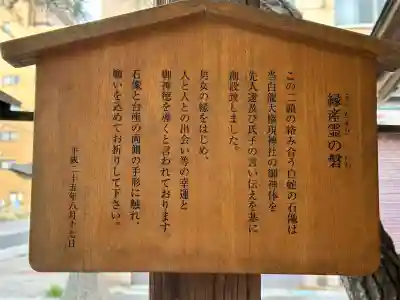 縁産霊の磐
この二頭の絡み合う白蛇の石像は
当白龍大権現神社の御神体を
先人達及び氏子の言い伝えを基に
創設致しました。
男女の縁をはじめ、
人と人との出会い等の幸運と
御神徳を導くと言われております
石像と台座の両側の手形に触れ、
願いを込めてお祈りして下さい。
平成二十五年八月十七日